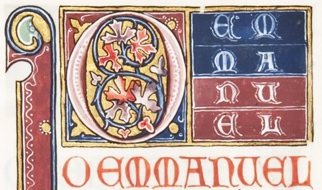 O
EM
MA
NU
EL
O EMMANUEL